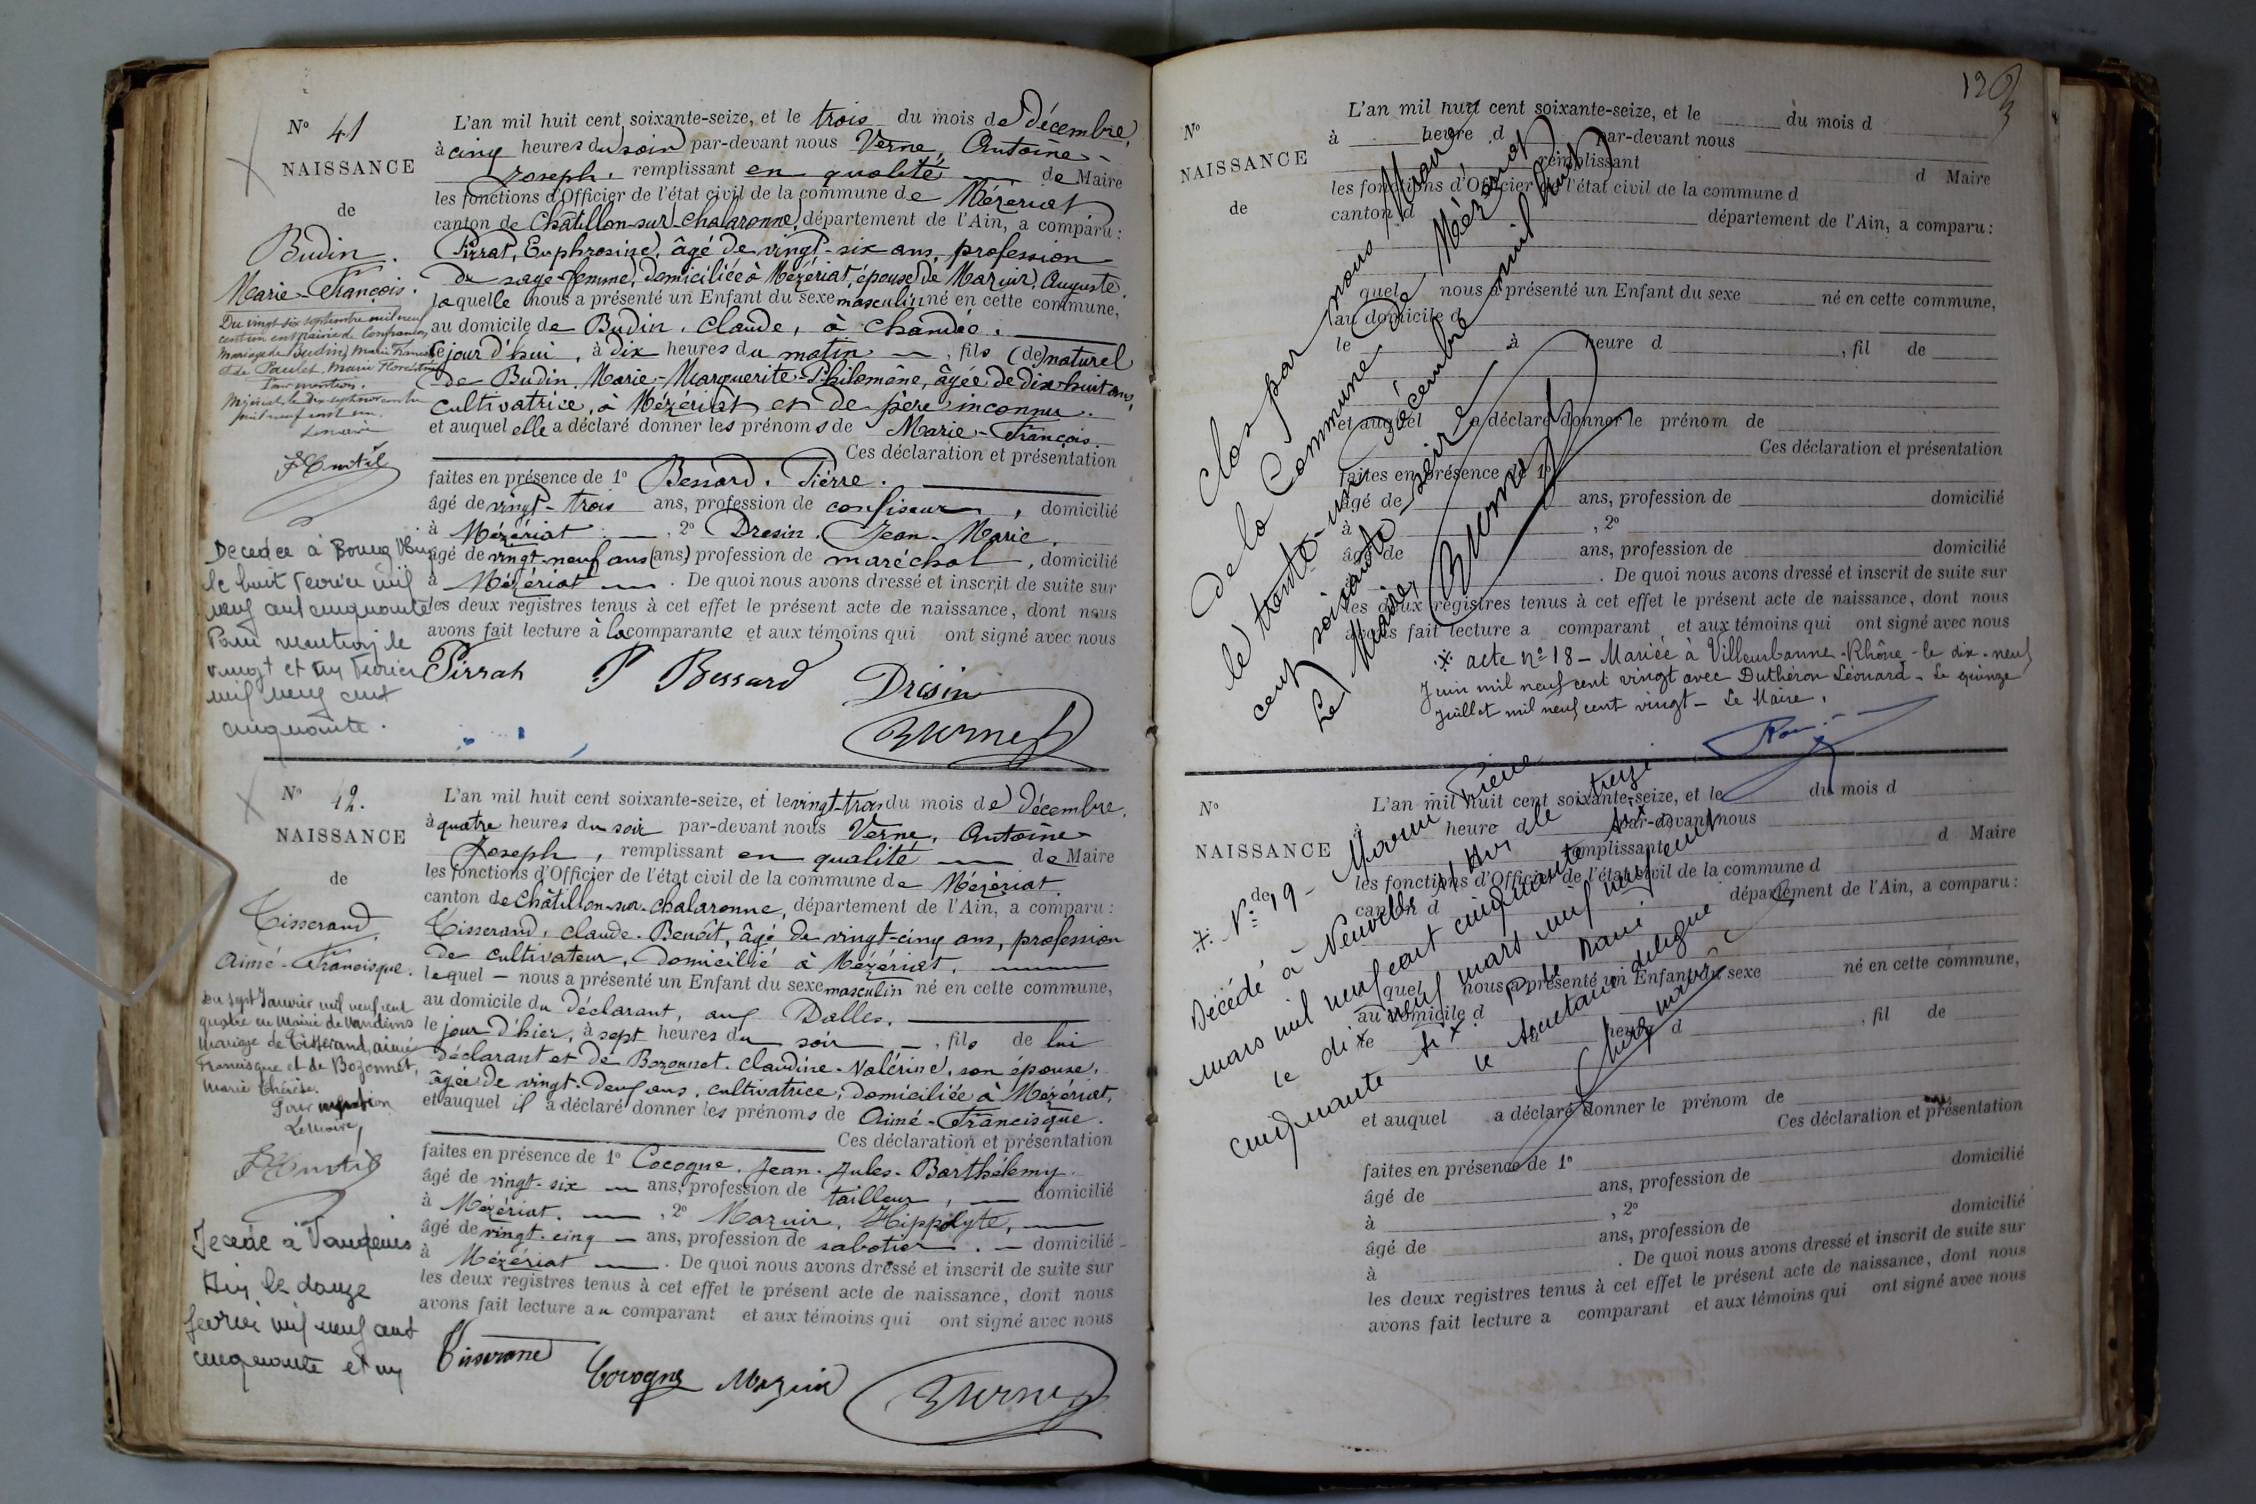 N° 41
NAISSANCE
de
Budin.
Marie-François.
Du vingt six septembre mil neuf
cent un en mairie de Confrançon
mariage de Budin, Marie François
et de Paulet, Marie Florentine
Pour mention.
Mézériat le dix sept novembre
mil neuf cent un.
Le maire
Décédé à Bourg Ain
le huit février mil
neuf cent cinquante
Pour mention le
vingt et un février
mil neuf cent
cinquante.
L'an mil huit cent soixante-seize, et le trois du mois de Décembre,
à cinq heures du soir par-devant nous Verne, Antoine-
Joseph, remplissant en qualité de Maire
les fonctions d'Officier de l'état civil de la commune de Mézériat
canton de Châtillon-sur-Chalaronne, département de l'Ain, a comparu :
Pirrat, Euphrosine, âgé de vingt-six ans, profession
de sage-femme, domiciliée à Mézériat, épouse de Mazuir, Auguste,
laquelle nous a présenté un Enfant du sexe masculin né en cette commune,
au domicile de Budin, Claude, à Chandéo.
le jour d'hui, à dix heures du matin, fils (de) naturel
de Budin, Marie-Marguerite-Philomène, âgée de dix huit ans,
cultivatrice, à Mézériat et de père inconnu.
et auquel elle a déclaré donner les prénoms de Marie-François.
Ces déclaration et présentation
faites en présence de 1° Bessard, Pierre.
âgé de vingt-trois ans, profession de confiseur, domicilié
à Mézériat, 2° Dresin, Jean-Marie,
âgé de vingt-neuf ans (ans) profession de maréchal, domicilié
à Mézériat. De quoi nous avons dressé et inscrit de suite sur
les deux registres tenus à cet effet le présent acte de naissance, dont nous
avons fait lecture à la comparante et aux témoins qui ont signé avec nous
Pirrat P Bessard Drésin
Verne
N° 42.
NAISSANCE
de
Tisserand,
Aimé-Francisque.
Du sept Janvier mil neuf cent
quatre en Mairie de Vandeins
mariage de Tisserand, aimé
Francisque et de Bozonnet,
Marie Thérèse.
Pour mention
Le maire,
Décédé à Vandeins
Ain le douze
février mil neuf cent
cinquante et un
L'an mil huit cent soixante-seize, et le vingt-trois du mois de Décembre,
à quatre heures du soir par-devant nous Verne, Antoine-
Joseph, remplissant en qualité de Maire
les fonctions d'Officier de l'état civil de la commune de Mézériat
canton de Châtillon-sur-Chalaronne, département de l'Ain, a comparu :
Tisserand, Claude-Benoît, âgé de vingt-cinq ans, profession
de cultivateur, domicilié à Mézériat,
lequel nous a présenté un Enfant du sexe masculin né en cette commune,
au domicile du déclarant, aux Dalles,
le jour d'hier, à sept heures du soir, fils de lui
déclarant et de Bozonnet, Claudine-Valérine, son épouse,
âgée de vingt-deux ans, cultivatrice, domiciliée à Mézériat,
et auquel il a déclaré donner les prénoms de Aimé-Francisque.
Ces déclaration et présentation
faites en présence de 1° Cocogne, Jean-Jules-Barthélemy
âgé de vingt-six ans, profession de tailleur, domicilié
à Mézériat, 2° Mazuir, Hippolyte,
âgé de vingt-cinq ans, profession de sabotier. domicilié
à Mézériat. De quoi nous avons dressé et inscrit de suite sur
les deux registres tenus à cet effet le présent acte de naissance, dont nous
avons fait lecture au comparant et aux témoins qui ont signé avec nous
Tisserand Cocogne Mazuir Verne
123
N°
NAISSANCE
de
L'an mil huit cent soixante-seize, et le du mois d
à heure d par-devant nous
remplissant d Maire
les fonctions d'Officier de l'état civil de la commune d
canton d département de l'Ain, a comparu :
quel nous a présenté un Enfant du sexe né en cette commune,
au domicile d
le à heure d , fil de
et auquel a déclaré donner le prénom de
Ces déclaration et présentation
faites en présence de 1°
âgé de ans, profession de domicilié
à , 2°
âgé de ans, profession de domicilié
à . De quoi nous avons dressé et inscrit de suite sur
les deux registres tenus à cet effet le présent acte de naissance, dont nous
avons fait lecture a comparant et aux témoins qui ont signé avec nous
Clos par nous Maire
de la Commune de Mézériat
le trente-un Décembre mil huit
cent soixante-seize
Le Maire,
Verne
acte n° 18 - Mariée à Villeurbanne-Rhône - le dix-neuf
Juin mil neuf cent vingt avec Duthéron Léonard - Le quinze
juillet mil neuf cent vingt - Le Maire,
N°
NAISSANCE
de
L'an mil huit cent soixante-seize, et le du mois d
heure d par-devant nous
remplissant d Maire
les fonctions d'Officier de l'état civil de la commune d
canton d département de l'Ain, a comparu :
quel nous a présenté un Enfant du sexe né en cette commune,
au domicile d
le heure d , fil de
et auquel a déclaré donner le prénom de
Ces déclaration et présentation
faites en présence de 1°
âgé de ans, profession de domicilié
à , 2°
âgé de ans, profession de domicilié
à . De quoi nous avons dressé et inscrit de suite sur
les deux registres tenus à cet effet le présent acte de naissance, dont nous
avons fait lecture a comparant et aux témoins qui ont signé avec nous
N° 19 - Pierre
Décédé à Neuville s/ Ain le treize
mars mil neuf cent cinquante six
le dix neuf mars mil neuf cent
cinquante six. P. le Maire
le secrétaire délégué